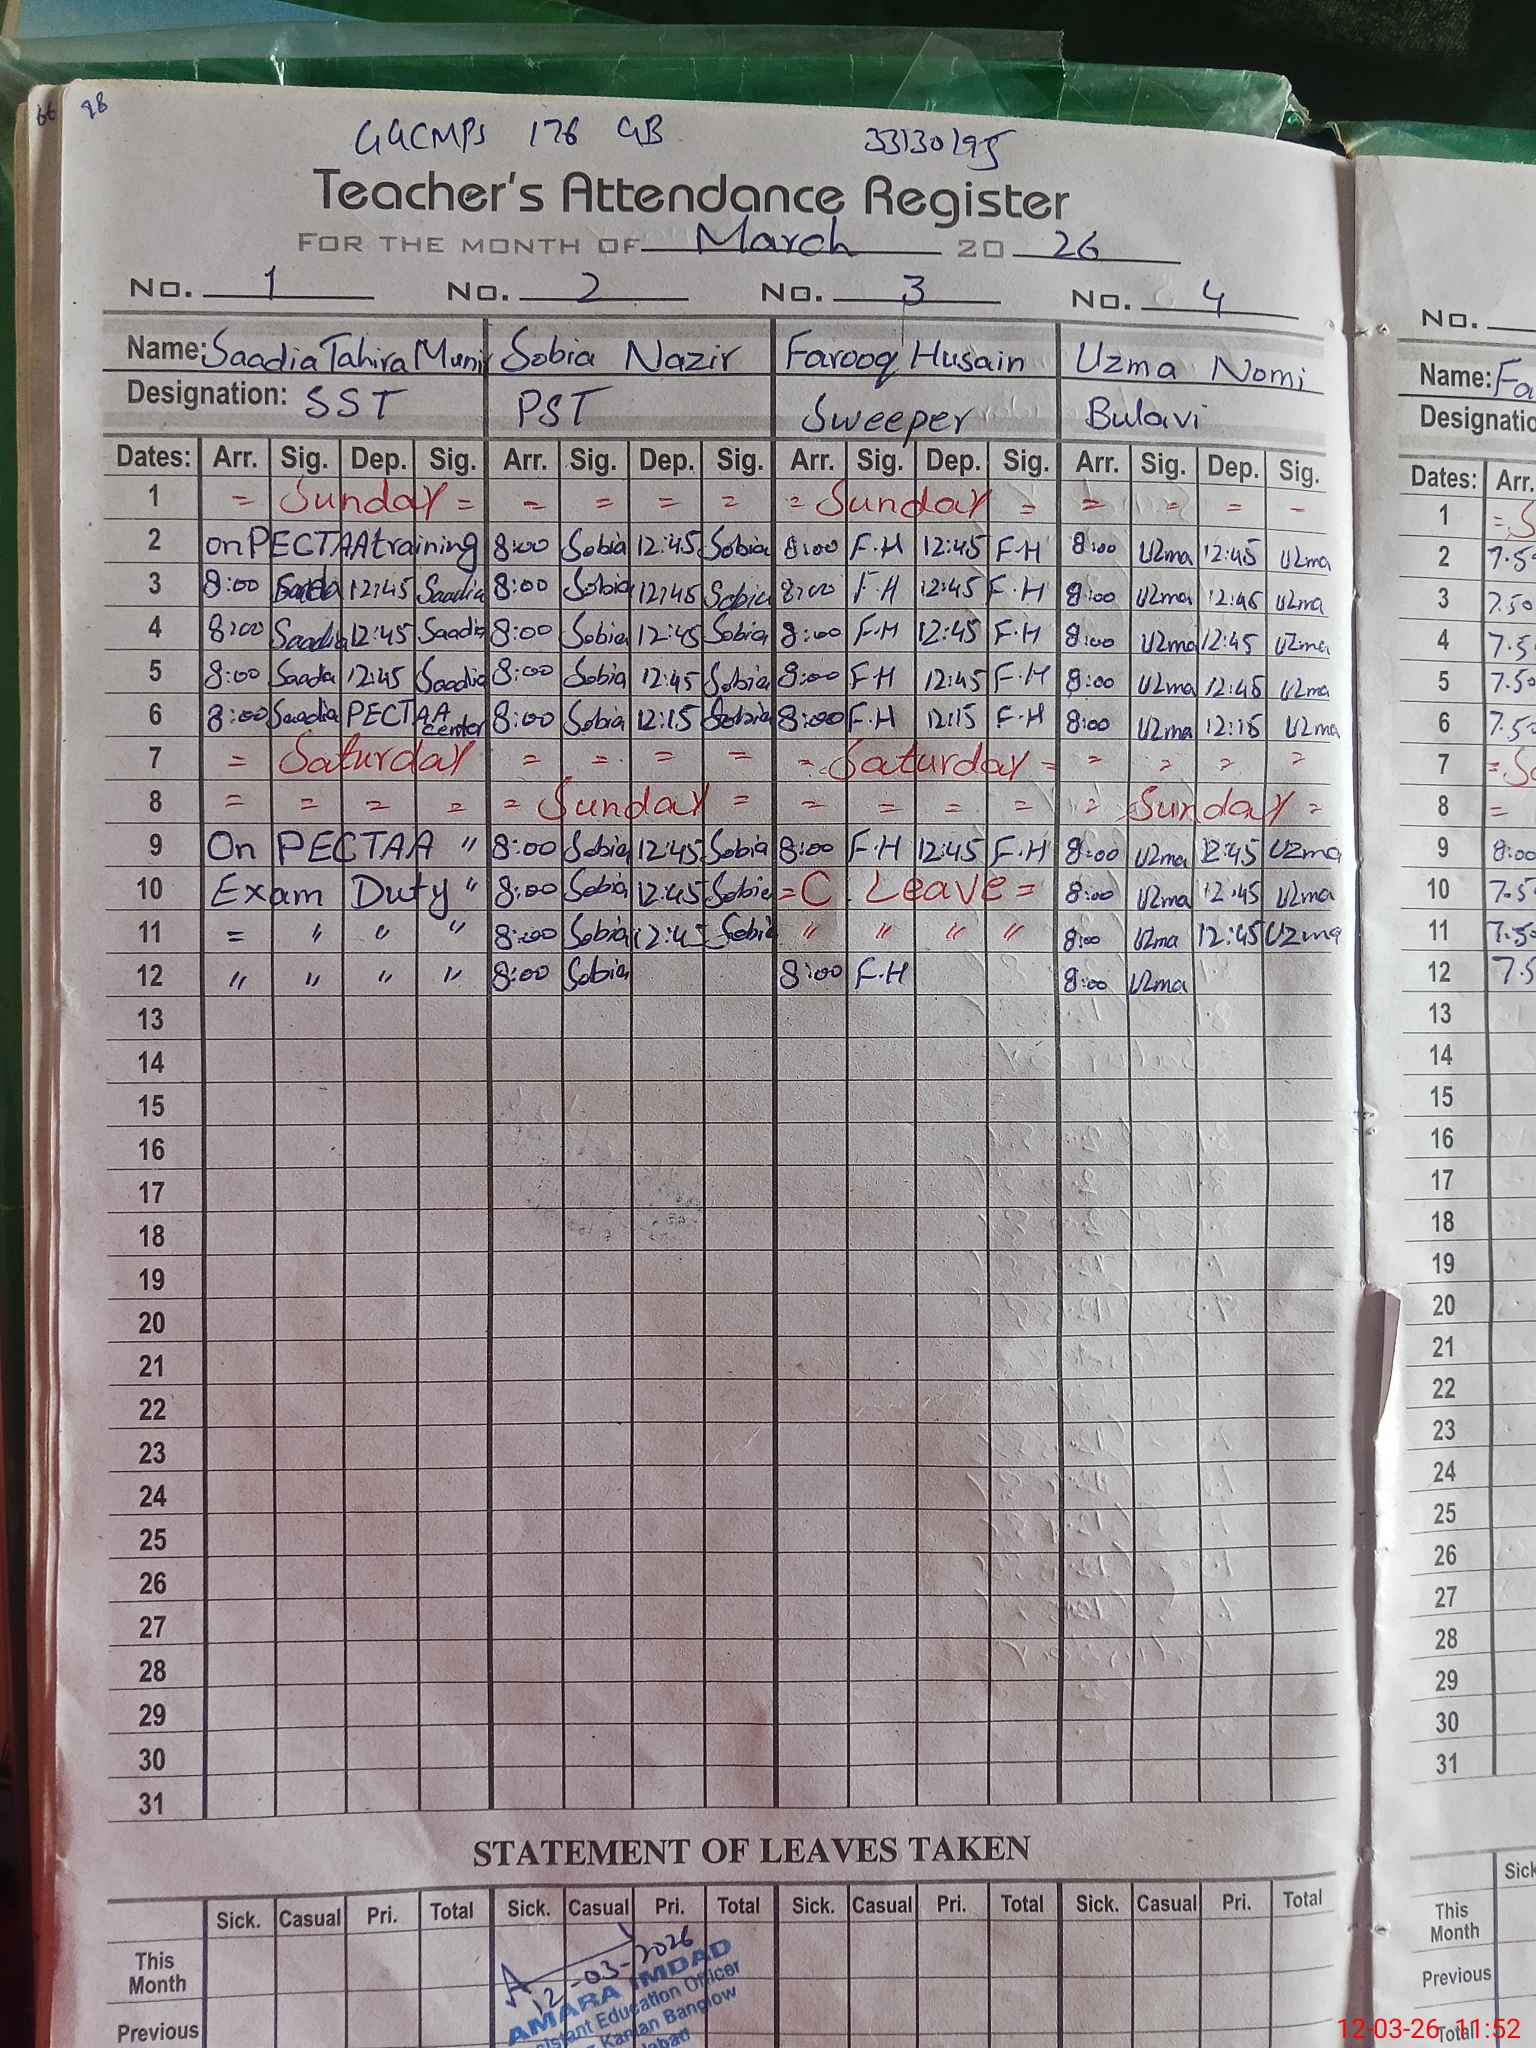 66 98
GGCMPS 176 GB 33130195
Teacher's Attendance Register
FOR THE MONTH OF March 20 26
No. 1 No. 2 No. 3 No. 4
Name: Saadia Tahira Munir Sobia Nazir Farooq Husain Uzma Nomi
Designation: SST PST Sweeper Bulavi
Dates: Arr. Sig. Dep. Sig. Arr. Sig. Dep. Sig. Arr. Sig. Dep. Sig. Arr. Sig. Dep. Sig.
1 = Sunday = = = = = = Sunday = = = = -
2 on PECTAA training 8:00 Sobia 12:45 Sobia 8:00 F.H 12:45 F.H 8:00 Uzma 12:45 Uzma
3 8:00 Saadia 12:45 Saadia 8:00 Sobia 12:45 Sobia 8:00 F.H 12:45 F.H 8:00 Uzma 12:45 Uzma
4 8:00 Saadia 12:45 Saadia 8:00 Sobia 12:45 Sobia 8:00 F.H 12:45 F.H 8:00 Uzma 12:45 Uzma
5 8:00 Saadia 12:45 Saadia 8:00 Sobia 12:45 Sobia 8:00 F.H 12:45 F.H 8:00 Uzma 12:45 Uzma
6 8:00 Saadia PECTAA center 8:00 Sobia 12:15 Sobia 8:00 F.H 12:15 F.H 8:00 Uzma 12:15 Uzma
7 = Saturday = = = = = Saturday = = " " "
8 = = = = = Sunday = = = = = = Sunday =
9 On PECTAA " 8:00 Sobia 12:45 Sobia 8:00 F.H 12:45 F.H 8:00 Uzma 12:45 Uzma
10 Exam Duty " 8:00 Sobia 12:45 Sobia = C. Leave = 8:00 Uzma 12:45 Uzma
11 = " " " 8:00 Sobia 12:45 Sobia " " " " 8:00 Uzma 12:45 Uzma
12 " " " " 8:00 Sobia 8:00 F.H 8:00 Uzma
13
14
15
16
17
18
19
20
21
22
23
24
25
26
27
28
29
30
31
STATEMENT OF LEAVES TAKEN
Sick. Casual Pri. Total Sick. Casual Pri. Total Sick. Casual Pri. Total Sick. Casual Pri. Total
This Month
Previous
12-03-2026
AMARA IMDAD
Assistant Education Officer
Kanian Banglow
No.
Name: Fa
Designatio
Dates: Arr.
1 = S
2 7.5
3 7.50
4 7.5
5 7.50
6 7.50
7 = Sa
8 =
9 8:00
10 7.5
11 7.50
12 7.5
13
14
15
16
17
18
19
20
21
22
23
24
25
26
27
28
29
30
31
Sick
This Month
Previous
Total
12-03-26 11:52